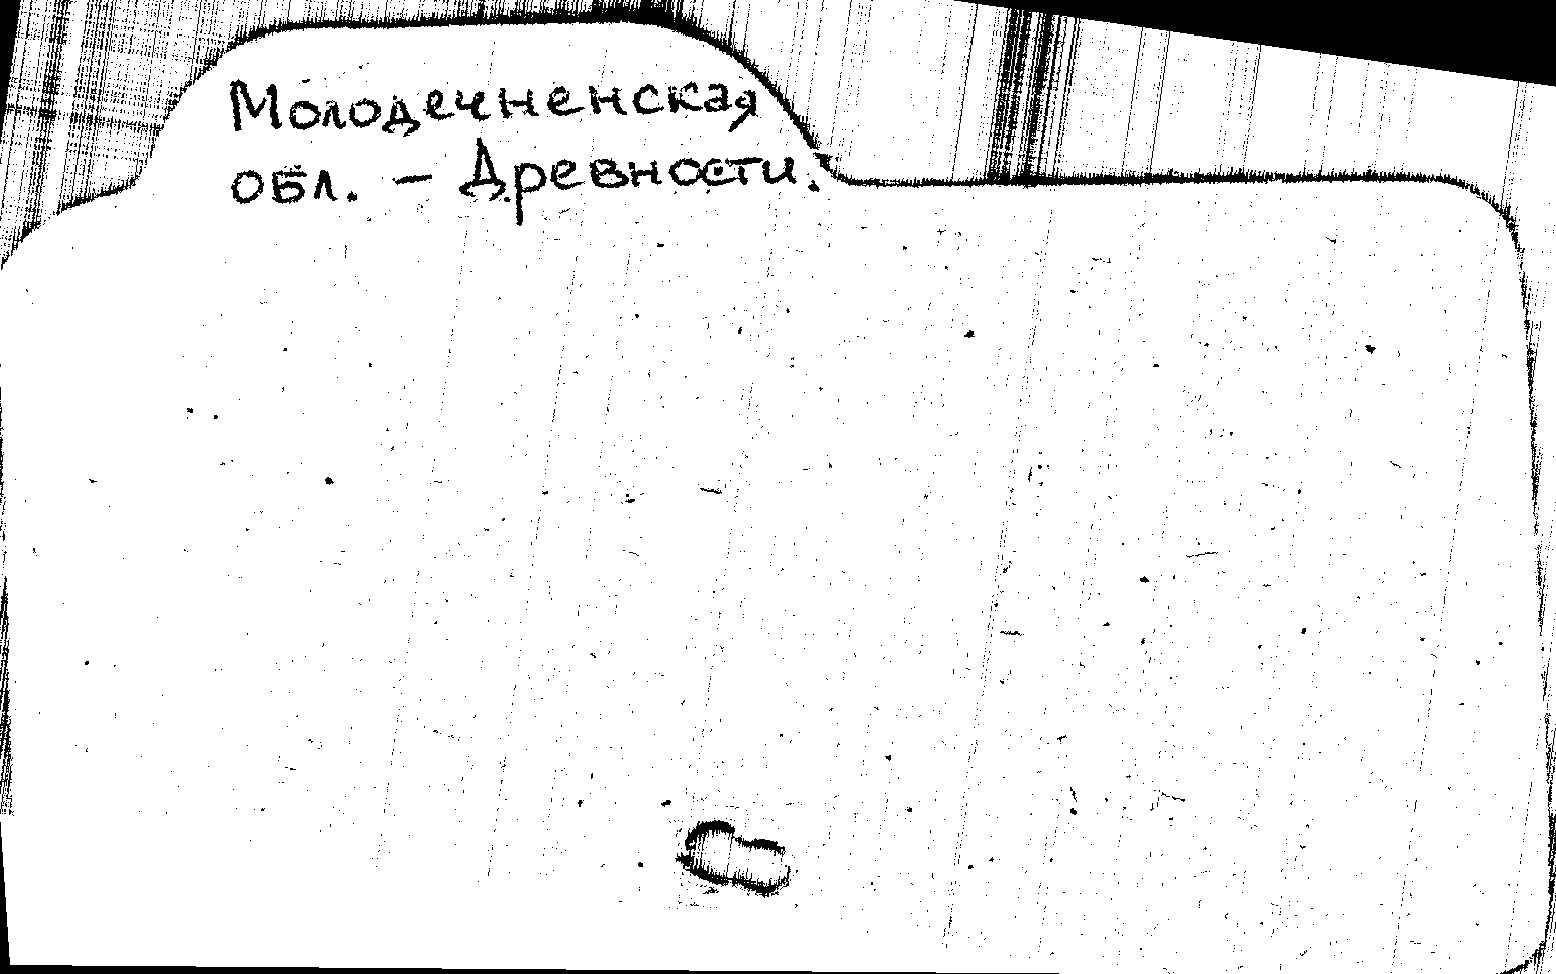 Молодечненская
обл. – Древности.